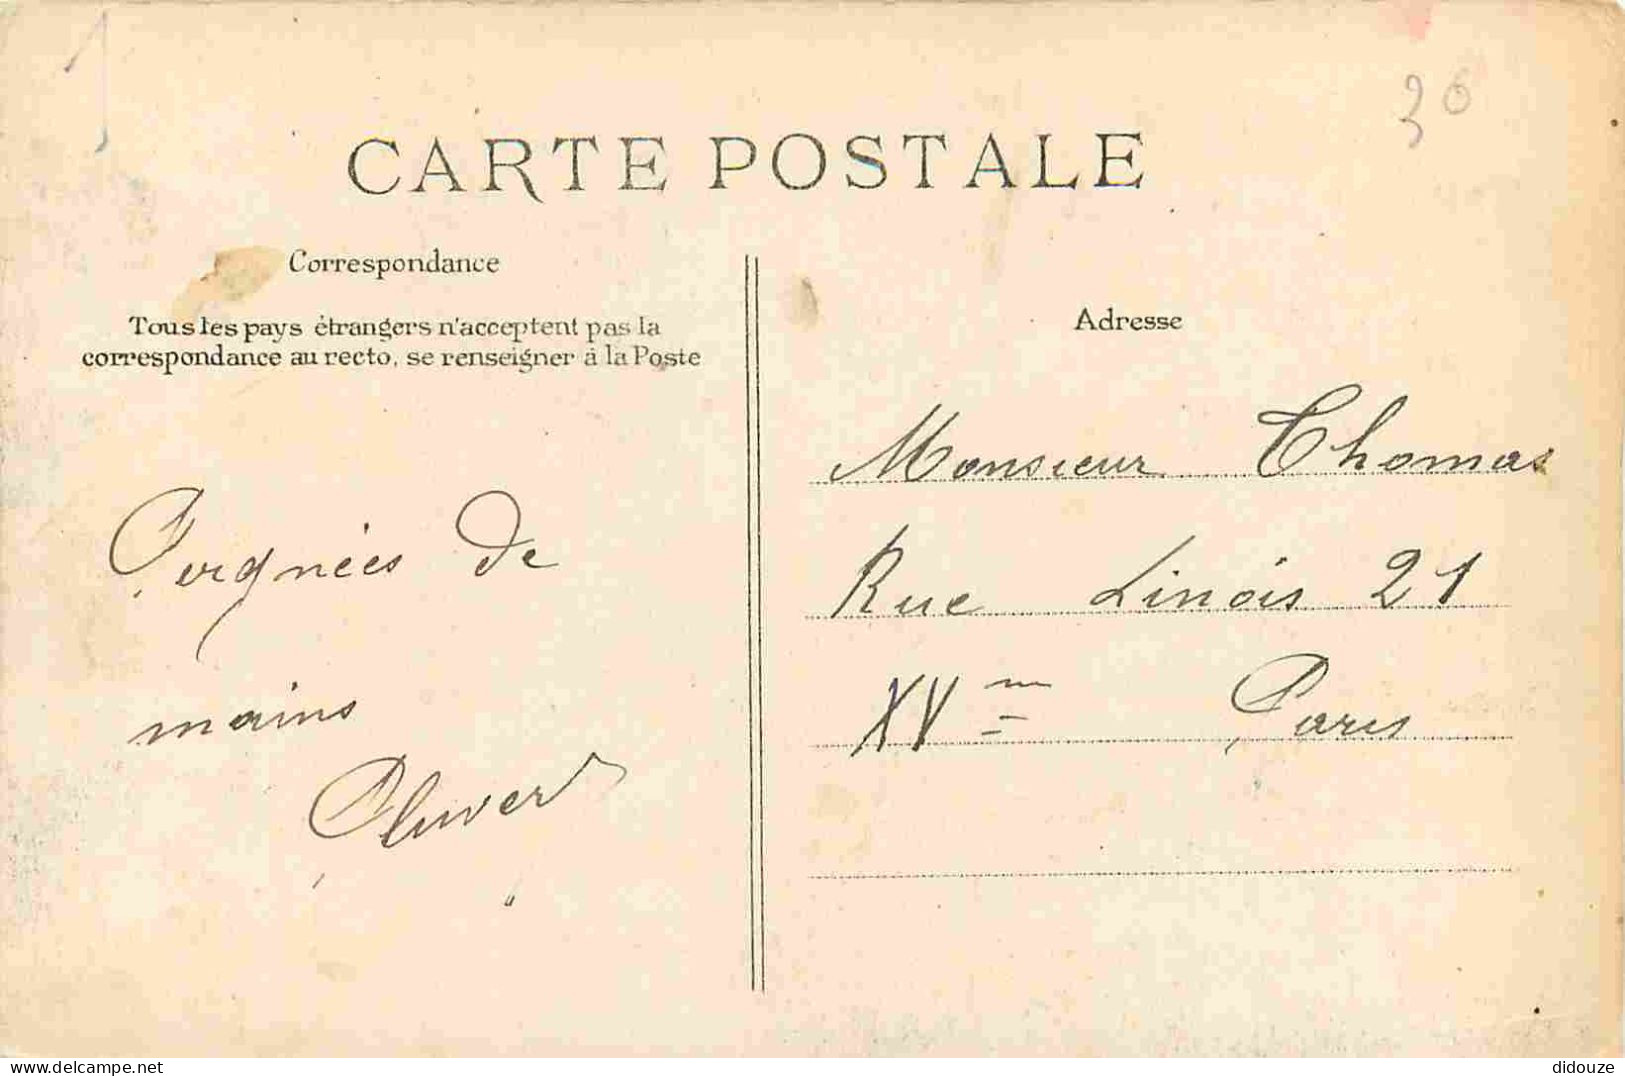 1
30
CARTE POSTALE
Correspondance
Tous les pays étrangers n'acceptent pas la
correspondance au recto, se renseigner à la Poste
Poignées de
mains
Adresse
Monsieur Thomas
Rue Linois 21
XVme Paris
didouze